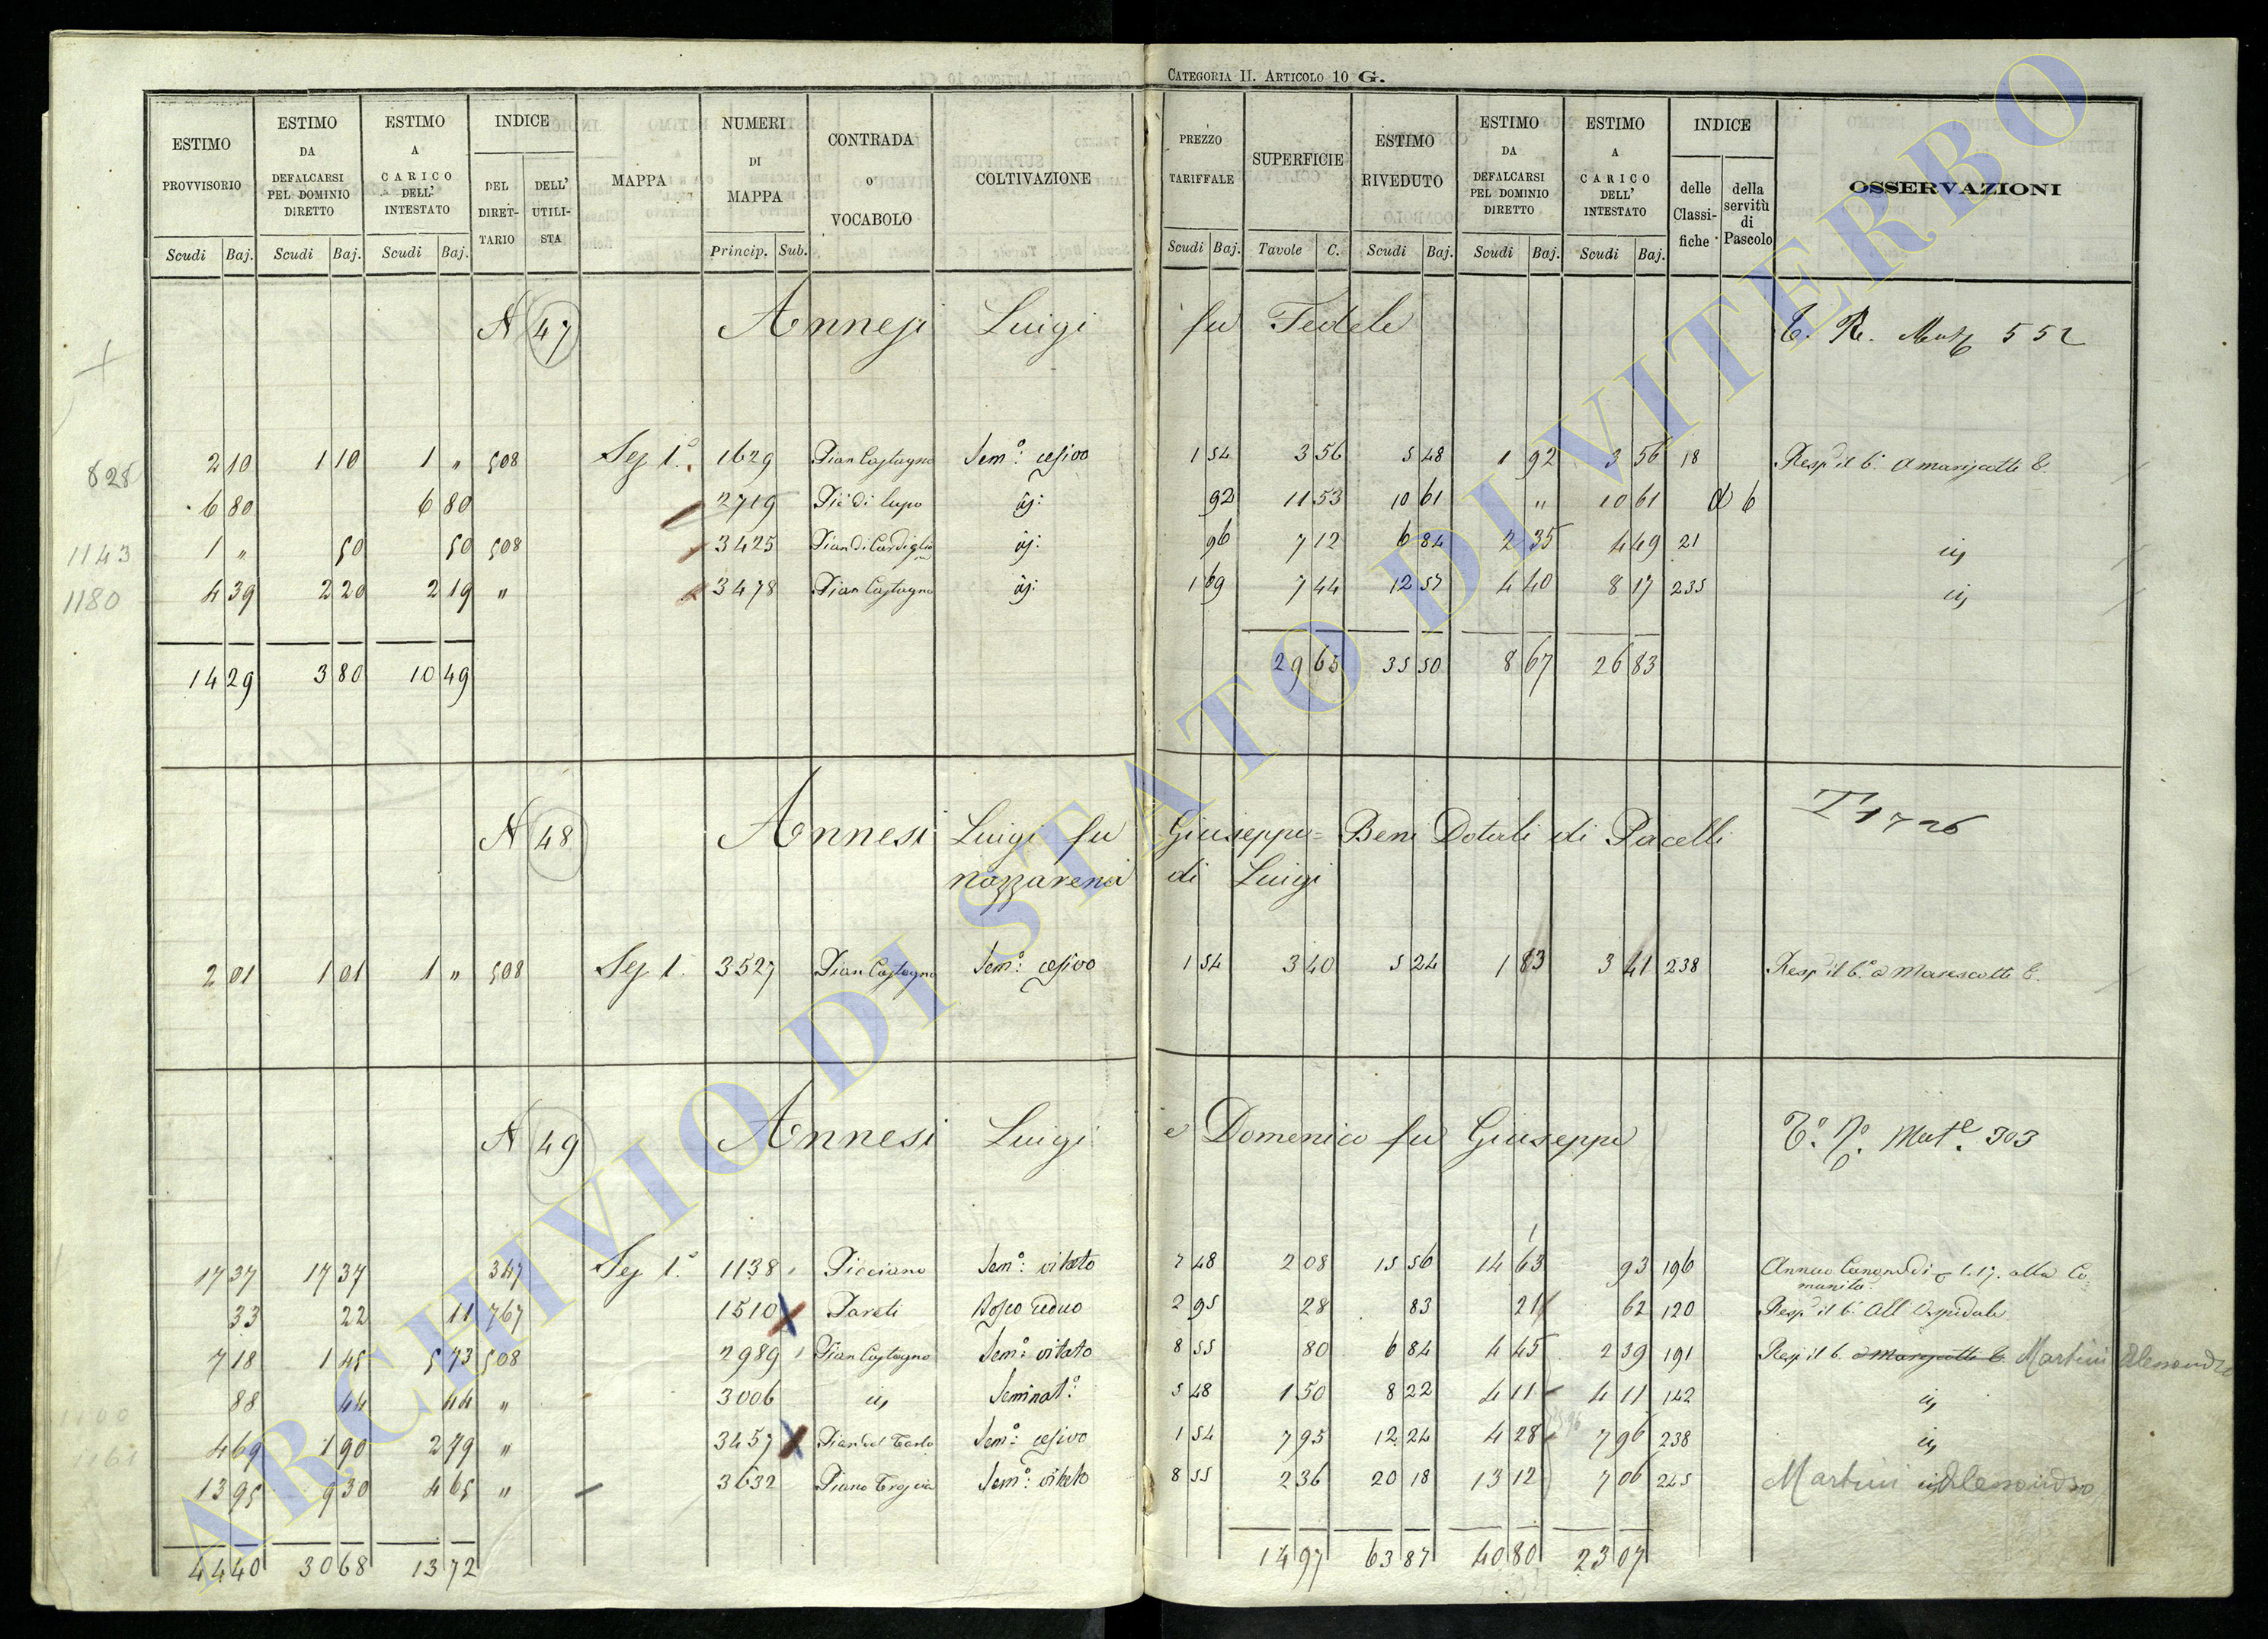 CATEGORIA II. ARTICOLO 10 G.
ESTIMO PROVVISORIO Scudi Baj.
ESTIMO DA DEFALCARSI PEL DOMINIO DIRETTO Scudi Baj.
ESTIMO A CARICO DELL' INTESTATO Scudi Baj.
INDICE DEL DIRET-TARIO DELL' UTILI-STA
MAPPA
NUMERI DI MAPPA Princip. Sub.
CONTRADA o VOCABOLO
COLTIVAZIONE
PREZZO TARIFFALE Scudi Baj.
SUPERFICIE Tavole C.
ESTIMO RIVEDUTO Scudi Baj.
ESTIMO DA DEFALCARSI PEL DOMINIO DIRETTO Scudi Baj.
ESTIMO A CARICO DELL' INTESTATO Scudi Baj.
INDICE delle Classi-fiche della servitù di Pascolo
OSSERVAZIONI
N 47 Annesi Luigi fu Fedele 552
828 2 10 1 10 1 " 508 Sez 1.ª 1629 Pian Castagno Sem.º cesivo 1 54 3 56 5 48 1 92 3 56 18 Resp. il 6.
6 80 6 80 2719 Piè di lupo id: 92 11 53 10 61 " 10 61 6
1143 1 " 50 50 508 3425 id: 96 7 12 6 84 2 35 4 49 21 id
1180 4 39 2 20 2 19 " 3478 Pian Castagno id: 1 69 7 44 12 57 4 40 8 17 235 id
14 29 3 80 10 49 29 65 35 50 8 67 26 83
N 48 Annesi Luigi fu Giuseppe = Beni Dotali di Pacelli T 1726
Nazzarena di Luigi
2 01 1 01 1 " 508 Sez 1. 3527 Pian Castagno Sem.º cesivo 1 54 3 40 5 24 1 83 3 41 238 Resp. il 6.º a Marescotti C.
N 49 Annesi Luigi e Domenico fu Giuseppe Mat.e 303
17 37 17 37 347 Sez 1.ª 1138 Picciano Sem.º vitato 7 48 2 08 15 56 14 63 93 196 Annuo Canone di alla Co=
munità
33 22 11 767 1510 Pareti Bosco ceduo 2 95 28 83 21 62 120 Resp. il 6. All'Ospedale
7 18 1 45 5 73 508 2989 Pian Castagno Sem.º vitato 8 55 80 6 84 4 45 2 39 191 Resp. il 6. Martini Alessandro
88 44 44 " 3006 id Seminat.º 5 48 1 50 8 22 4 11 4 11 142 id
1161 4 69 1 90 2 79 " 3457 Sem.º cesivo 1 54 7 95 12 24 4 28 7 96 238 id
13 95 9 30 4 65 " 3632 Sem.º vitato 8 55 2 36 20 18 13 12 7 06 245 Martini id Alessandro
44 40 30 68 13 72 14 97 63 87 40 80 23 07
ARCHIVIO DI STATO DI VITERBO